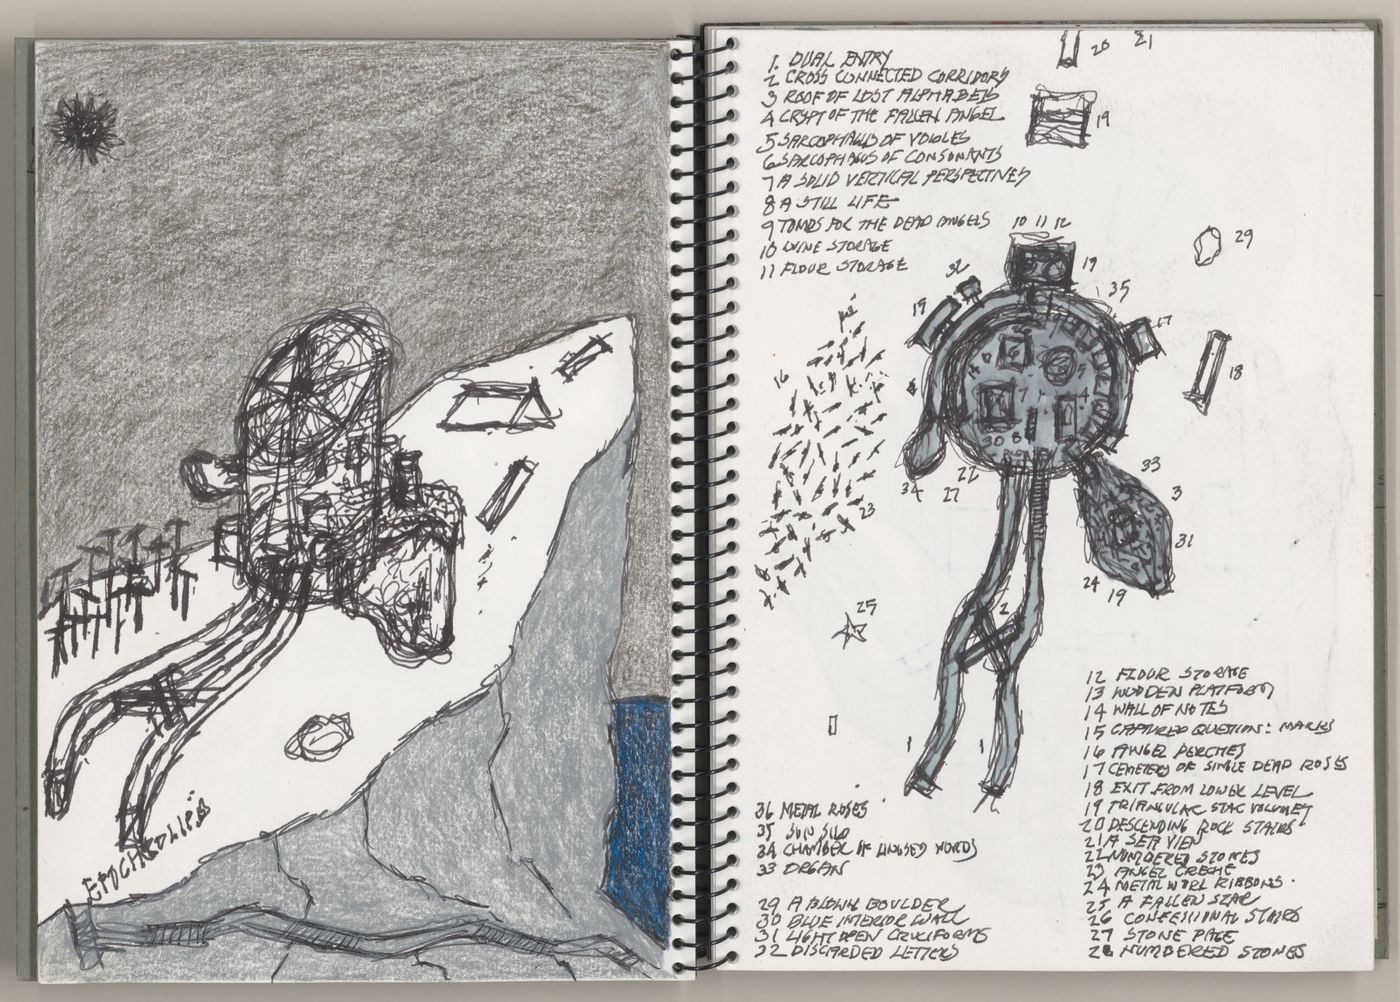 1. DUAL ENTRY
2 CROSS CONNECTED CORRIDORS
3 ROOF OF LOST ALPHABETS
4 CRYPT OF THE FALLEN ANGEL
5 SARCOPHAGUS OF VOWLES
6 SARCOPHAGUS OF CONSONANTS
7 A SOLID VERTICAL PERSPECTIVES
8 A STILL LIFE
9 TOMBS FOR THE DEAD ANGELS
10 WINE STORAGE
11 FLOUR STORAGE
20 21
19
10 11 12
29
32
19
35
15
17
18
16
30 8
34
22
27
23
33
3
31
24
19
25
2
1 1
12 FLOUR STORAGE
13 WOODEN PLATFORM
14 WALL OF NOTES
15 CAPTURED QUESTION: MARKS
16 ANGEL PERCHES
17 CEMETERY OF SINGLE DEAD ROSES
18 EXIT FROM LOWER LEVEL
19 TRIANGULAR STAC VOLUMES
20 DESCENDING ROCK STAIRS
21 A SEA VIEW
22 NUMBERED STONES
23 ANGEL CRECHE
24 METAL WORL RIBBONS.
25 A FALLEN STAR
26 CONFESSIONAL STAIRS
27 STONE PAGE
28 NUMBERED STONES
36 METAL ROSES
35 SUN SILO
34 CHAMBER OF UNUSED WORDS
33 ORGAN
29 A BLOWN BOULDER
30 BLUE INTERIOR WALL
31 LIGHT OPEN CRUCIFORMS
32 DISCARDED LETTERS